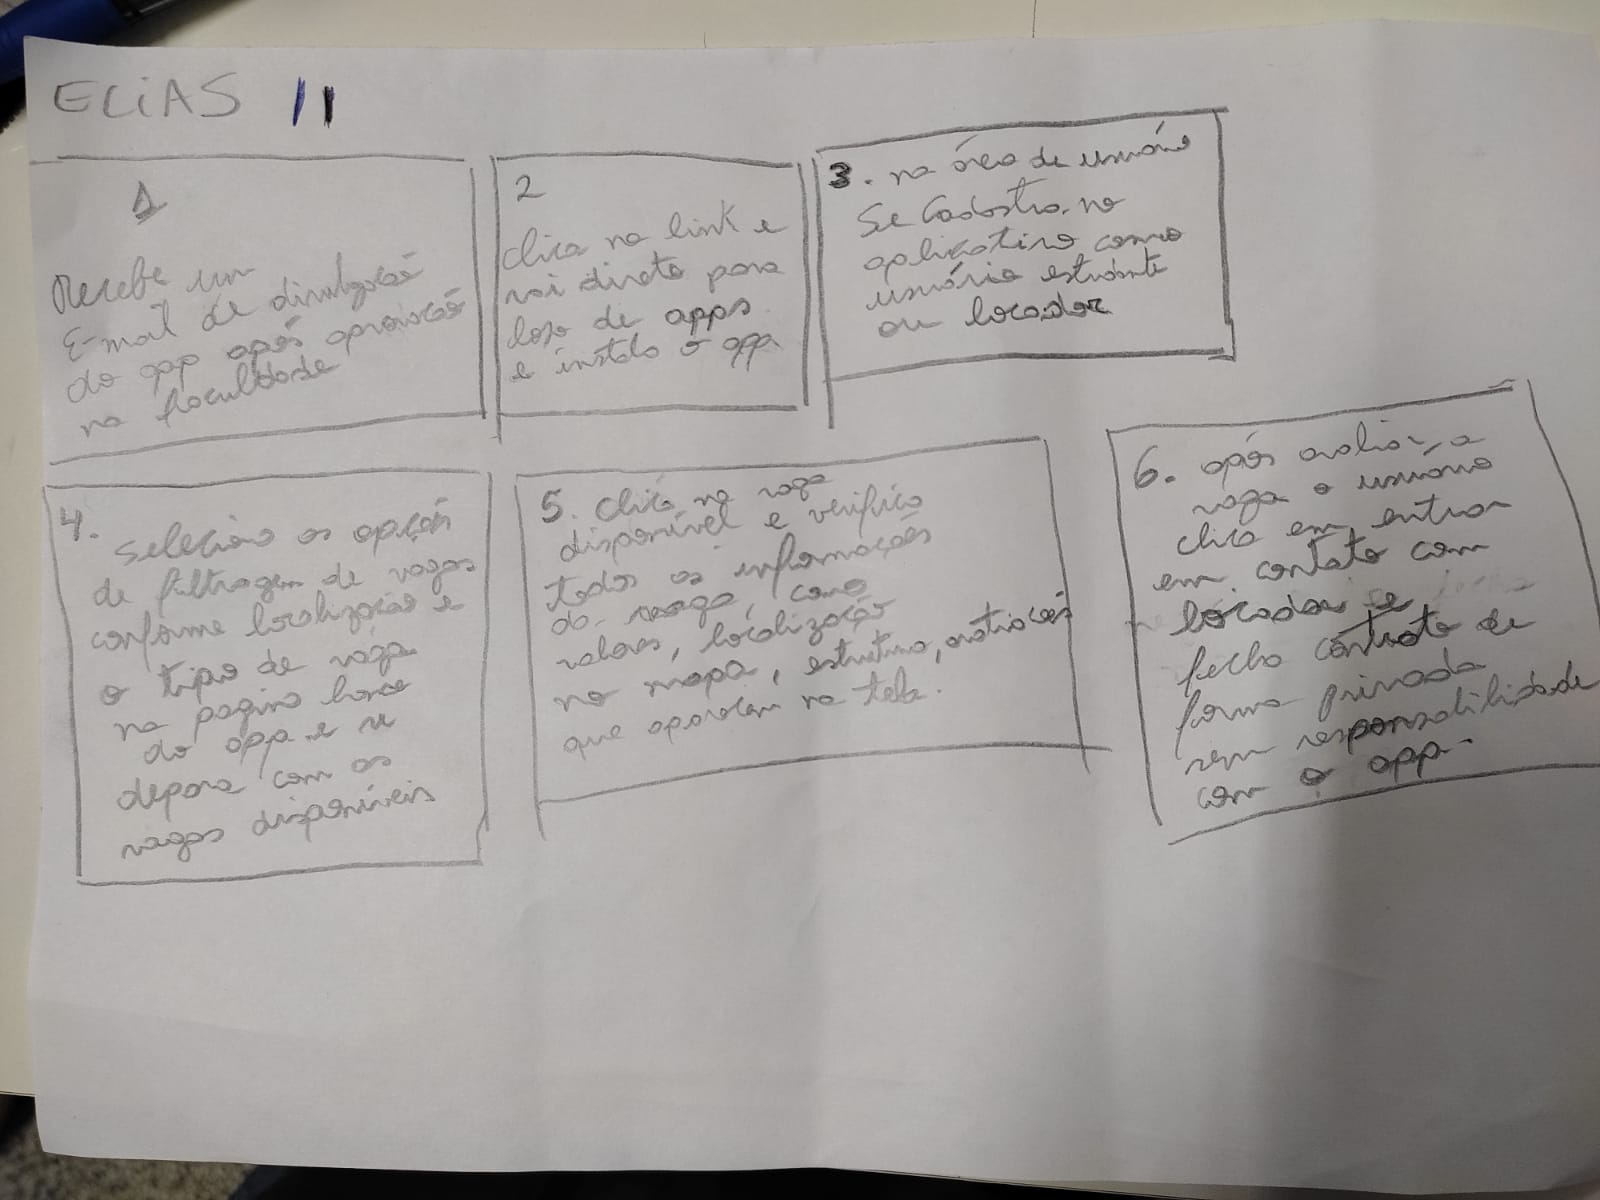 ELiAS
1
Recebe um
E-mail de divulgação
do app após aprovação
na faculdade
2
clica no link e
vai direto para
loja de apps
e instala o app
3. na área de usuário
Se Cadastra no
aplicativo como
usuário estudante
ou locador
4.
Seleciona as opções
de filtragem de vagas
conforme localização e
o tipo de vaga
na pagina home
do app e se
depara com as
vagas disponíveis
5. Clica na vaga
disponível e verifica
todas as informações
da vaga, como
valores, localização
no mapa, estrutura, avaliações
que aparecem na tela.
6. após avaliar, a
vaga o usuário
clica em entrar
em contato com
locador e
fecha contrato de
forma privada
sem responsabilidade
com o app.